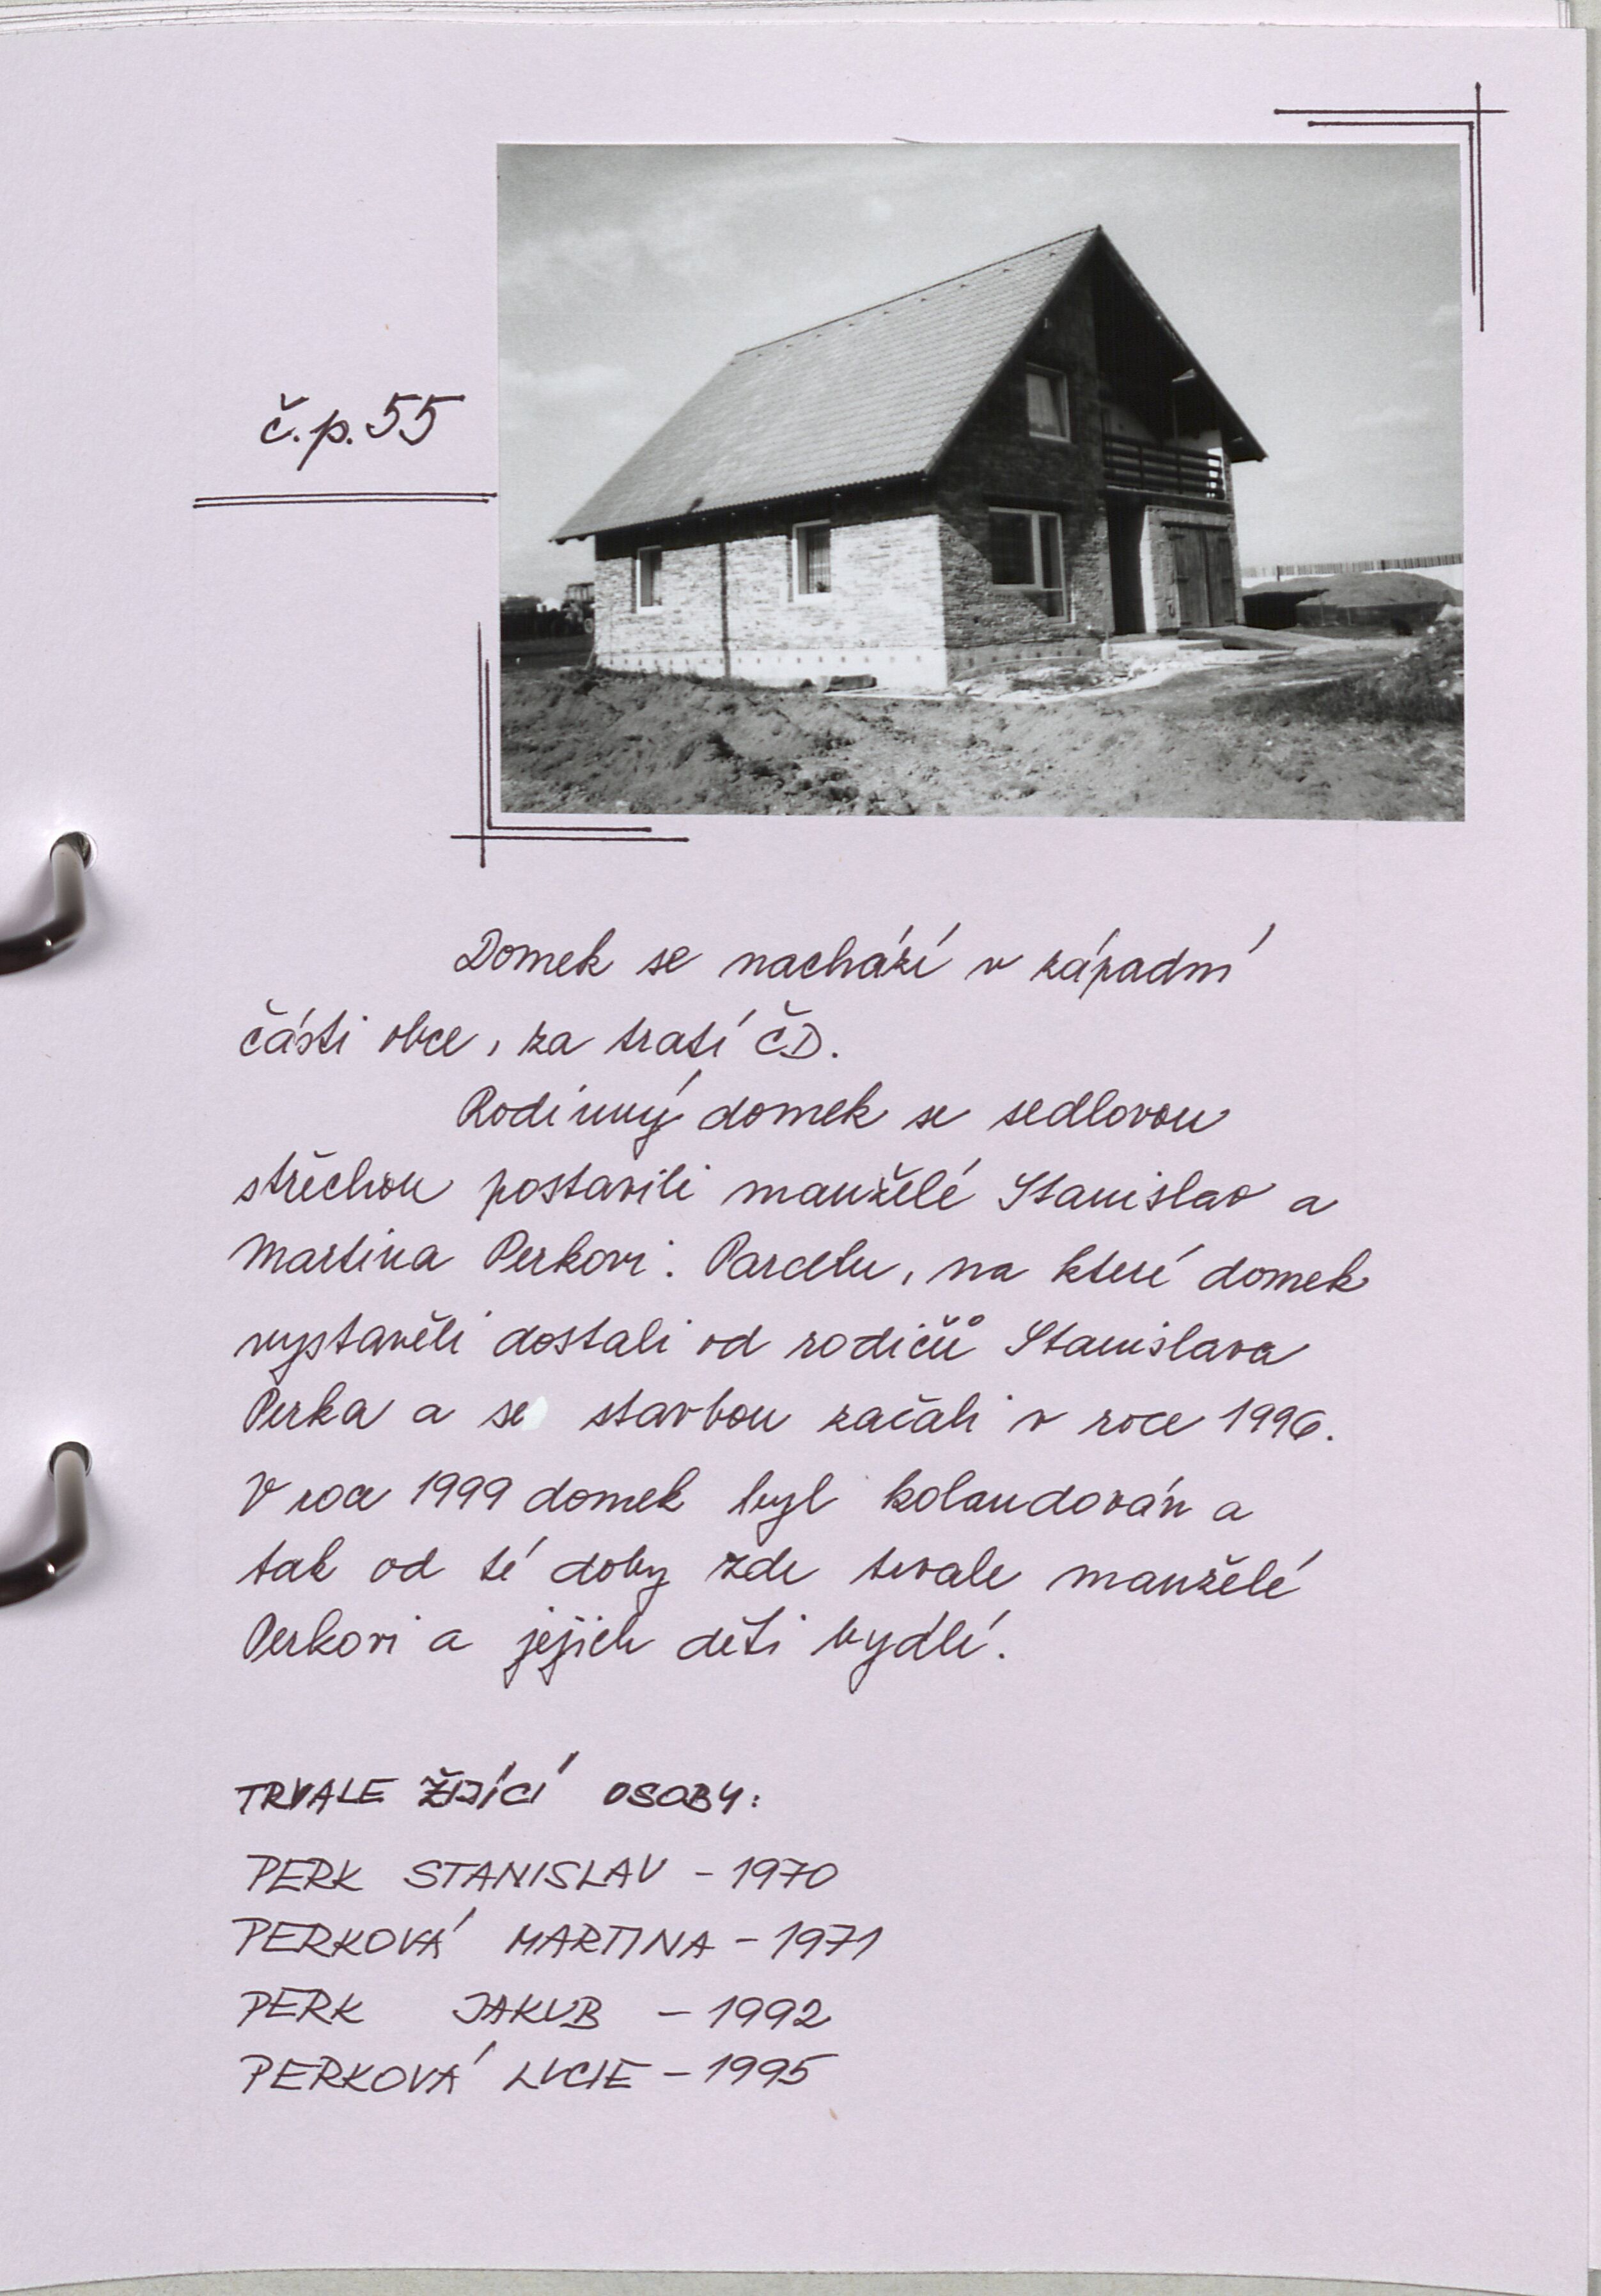 č.p. 55
Domek se nachází v západní
části obce, za tratí ČD.
Rodinný domek se sedlovou
střechou postavili manželé Stanislav a
Martina Perkovi. Parcelu, na které domek
vystavěli dostali od rodičů Stanislava
Perka a se stavbou začali v roce 1996.
V roce 1999 domek byl kolaudován a
tak od té doby zde trvale manželé
Perkovi a jejich děti bydlí.
TRVALE ŽIJÍCÍ OSOBY:
PERK STANISLAV - 1970
PERKOVÁ MARTINA - 1971
PERK JAKUB - 1992
PERKOVÁ LUCIE - 1995